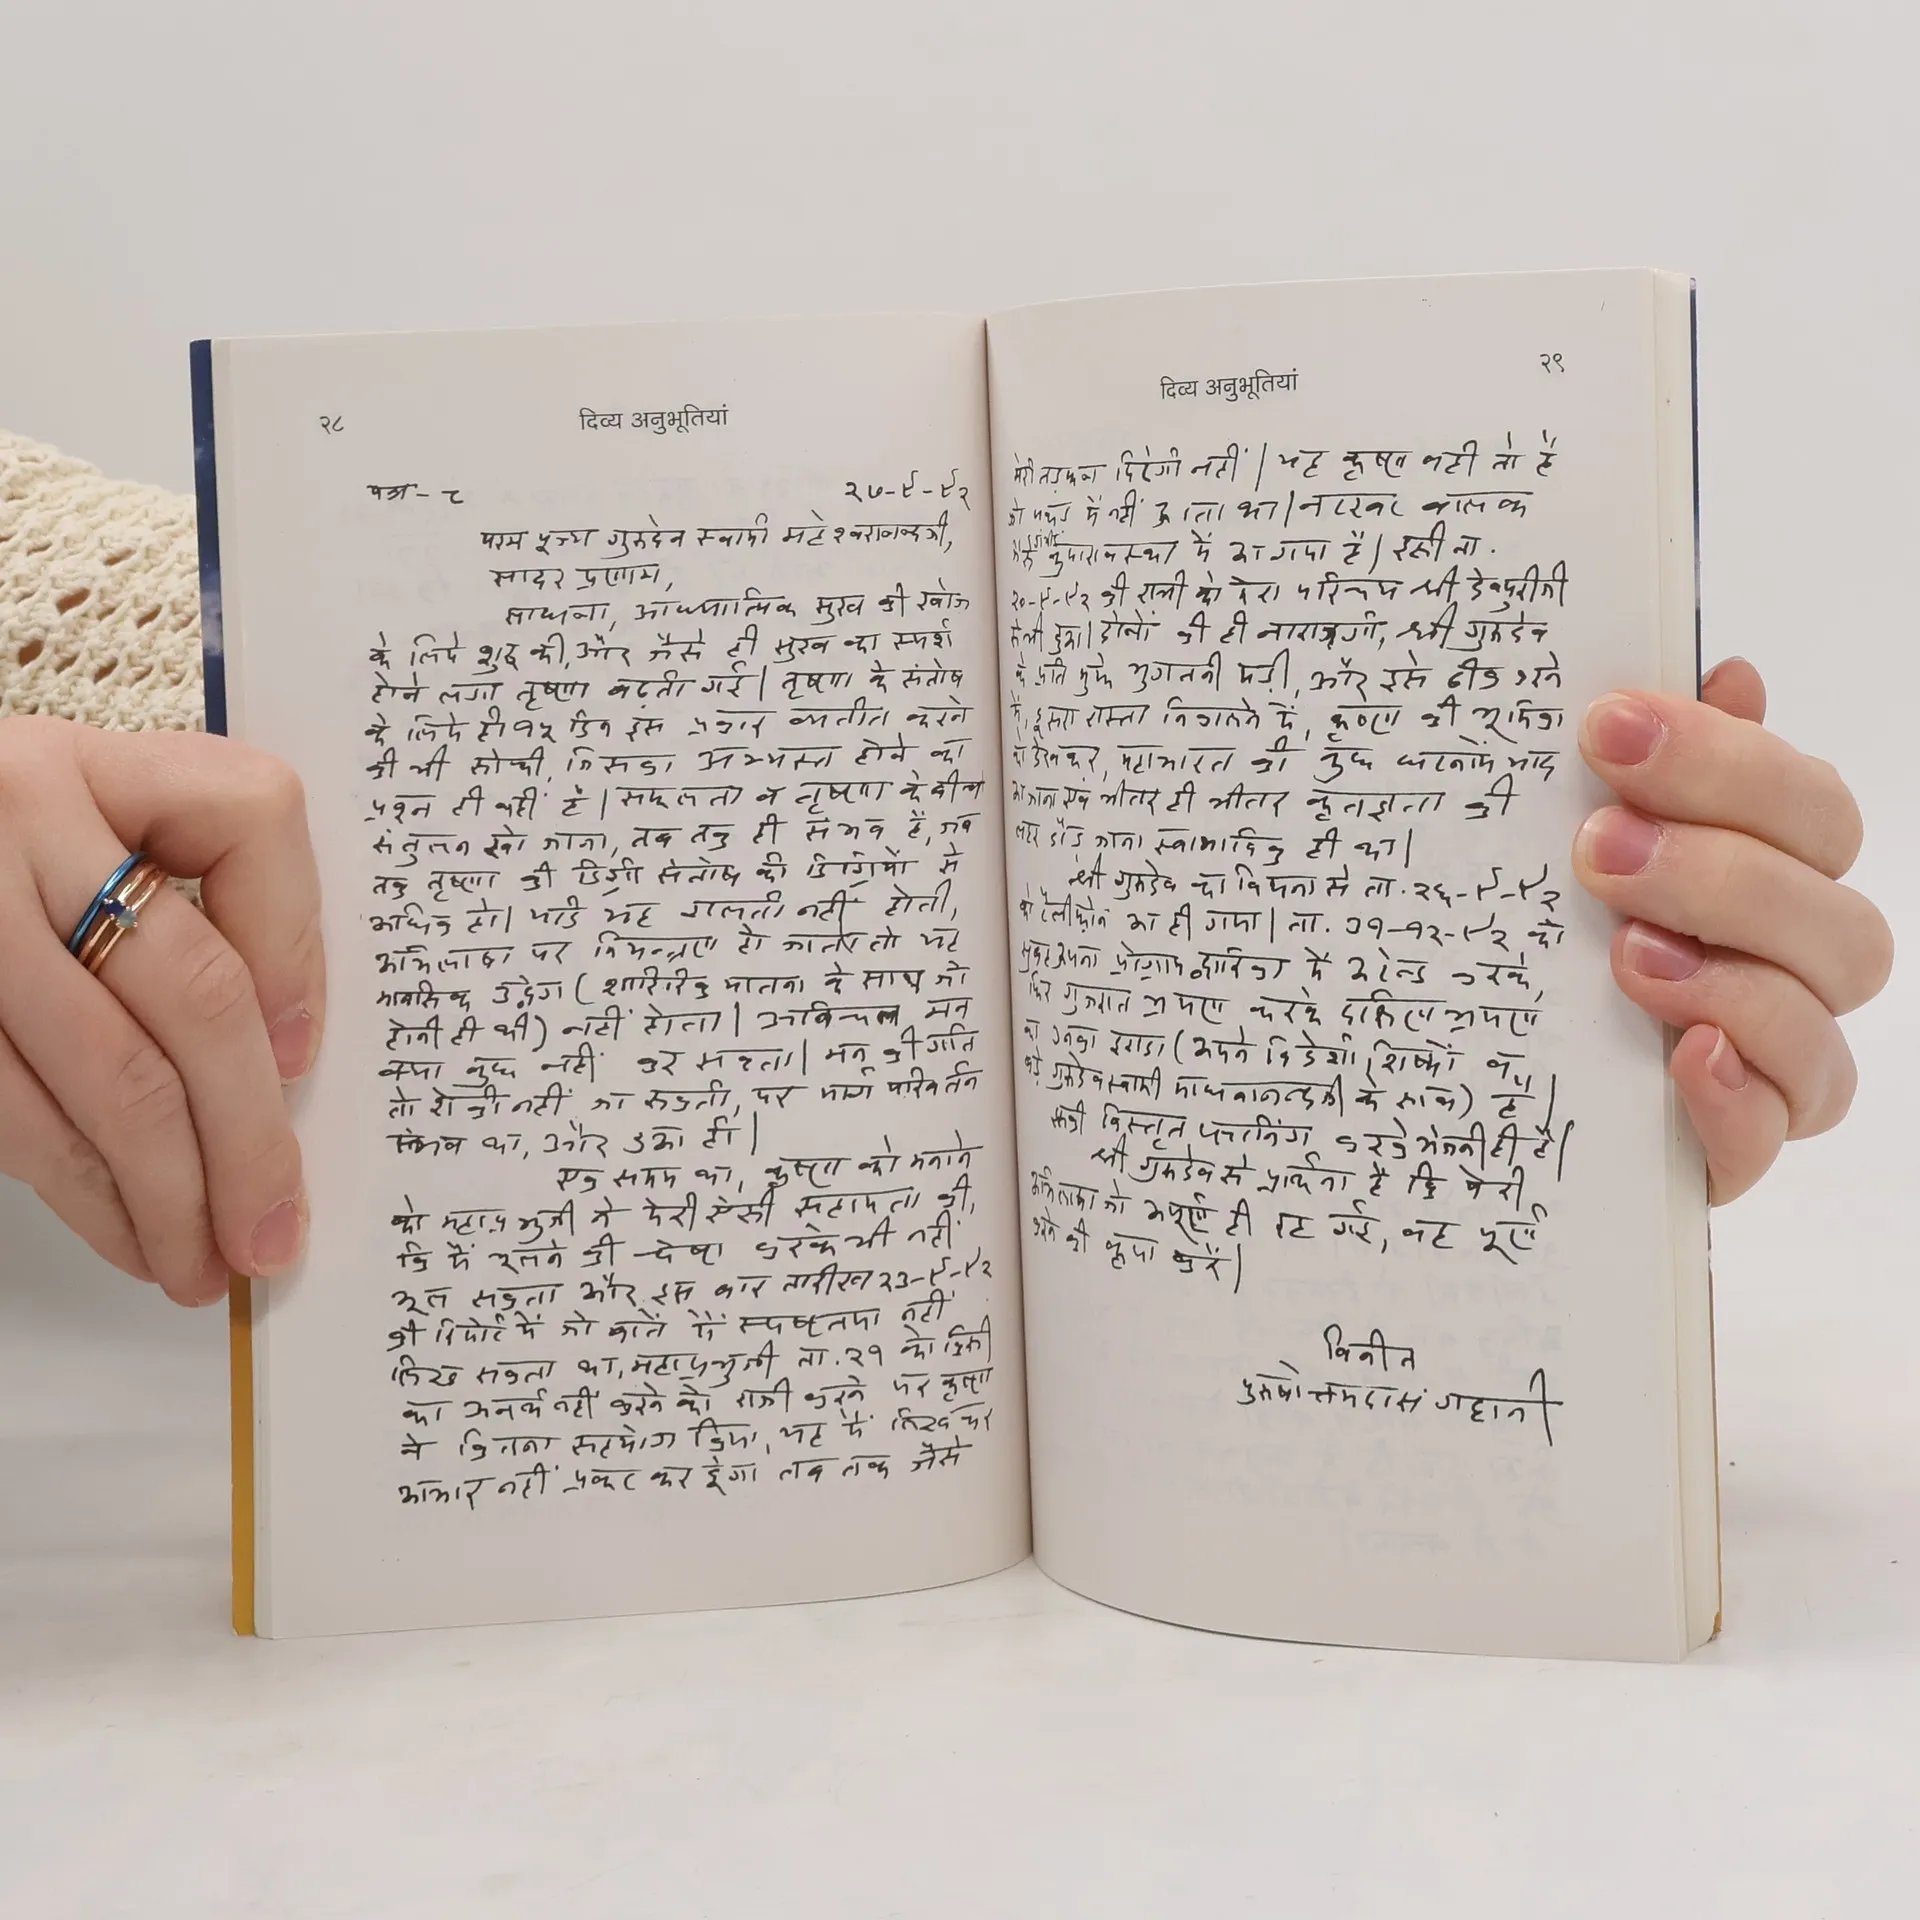 २८
दिव्य अनुभूतियां
पत्र - ८
२७-९-९२
परम पूज्य गुरुदेव स्वामी महेश्वरानन्दजी,
सादर प्रणाम,
साधना, आध्यात्मिक सुख की खोज
के लिये शुरू की, और जैसे ही सुख का स्पर्श
होने लगा तृष्णा बढ़ती गई। तृष्णा के संतोष
के लिये ही १५ दिन इस प्रकार व्यतीत करने
की भी सोची, जिसका अभ्यस्त होने का
प्रश्न ही नहीं है। सफलता व तृष्णा के बीच
संतुलन रखा जाना, तब तक ही संभव है, जब
तक तृष्णा की डिग्री संतोष की डिग्रियों से
अधिक हो। यदि यह गलती नहीं होती,
अभिलाषा पर नियन्त्रण हो जाता तो यह
मानसिक उद्वेग (शारीरिक यातना के साथ जो
होनी ही थी) नहीं होता। अविचल मन
क्या कुछ नहीं कर सकता। मन की गति
तो रोकी नहीं जा सकती, पर मार्ग परिवर्तन
संभव था, और हुआ ही।
एक समय था, कृष्णा को मनाने
को महाप्रभुजी ने मेरी ऐसी सहायता की,
कि मैं भूलने की चेष्टा करके भी नहीं
भूल सकता और इस बार तारीख २३-९-९२
की रिपोर्ट में जो बातें मैं स्पष्टतया नहीं
लिख सकता था, महाप्रभुजी ता. २१ को किसी
का अनर्थ नहीं करने को राजी करने पर कृष्णा
ने कितना सहयोग दिया, यह मैं लिख कर
आभार नहीं प्रकट कर दूंगा तब तक जैसे
२९
दिव्य अनुभूतियां
मेरी तड़फन मिटेगी नहीं। यह कृष्णा वही तो है
जो पकड़ में नहीं आता था। नटखट बालक
कुमारावस्था में आ गया है। इसी ता.
२०-९-९२ की रात्री को मेरा परिचय श्री देवपुरीजी
से भी हुआ। दोनों की ही नाराजगी, श्री गुरुदेव
के प्रति मुझे भुगतनी पड़ी, और इसे ठीक करने
में, दूसरा रास्ता निकालने में, कृष्णा की भूमिका
को देखकर, महाभारत की कुछ घटनायें याद
आ जाना एवं भीतर ही भीतर कृतज्ञता की
लहर दौड़ जाना स्वाभाविक ही था।
श्री गुरुदेव का वियना से ता. २६-९-९२
को टेलीफोन आ ही गया। ता. ३१-१२-९२ को
सुबह अपना प्रोग्राम द्वारिका में अटेन्ड करके,
फिर गुजरात भ्रमण करके दक्षिण भ्रमण
का उनका इरादा (अपने विदेशी शिष्यों व
बड़े गुरुदेव स्वामी माधवानन्दजी के साथ) है।
विस्तृत करके भेजनी ही है।
श्री गुरुदेव से प्रार्थना है कि मेरी
अभिलाषा जो अपूर्ण ही रह गई, वह पूर्ण
करने की कृपा करें।
विनीत
पुरुषोत्तमदास गहानी